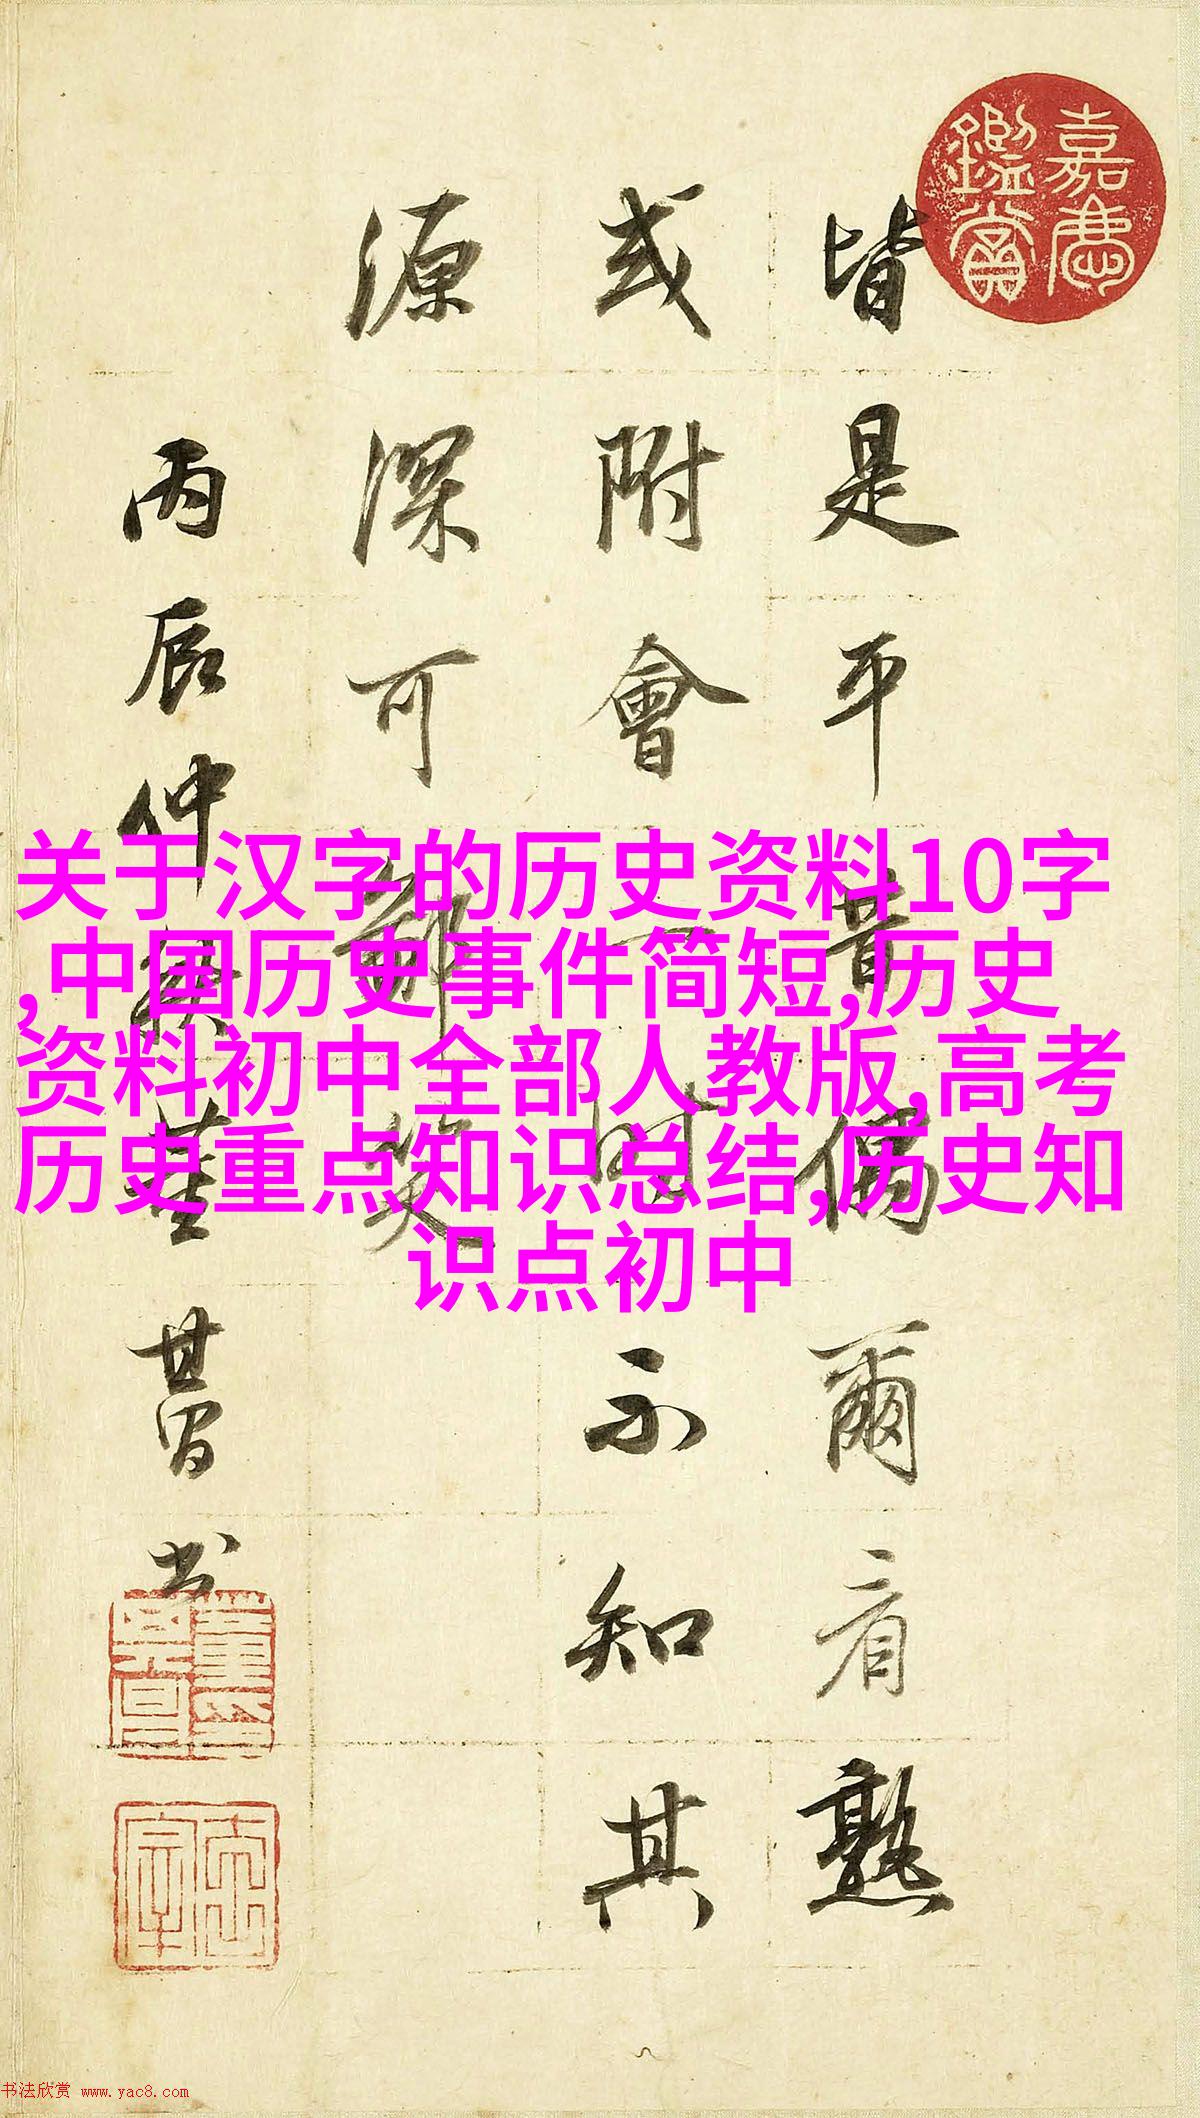 嘉慶
鑑賞
皆是平昔偶爾看熟
或附會一時不知其
源深可鄙笑
丙辰仲董其昌书
关于汉字的历史资料10字
,中国历史事件简短,历史
资料初中全部人教版,高考
历史重点知识总结,历史知
识点初中
书法欣赏 www.yac8.com